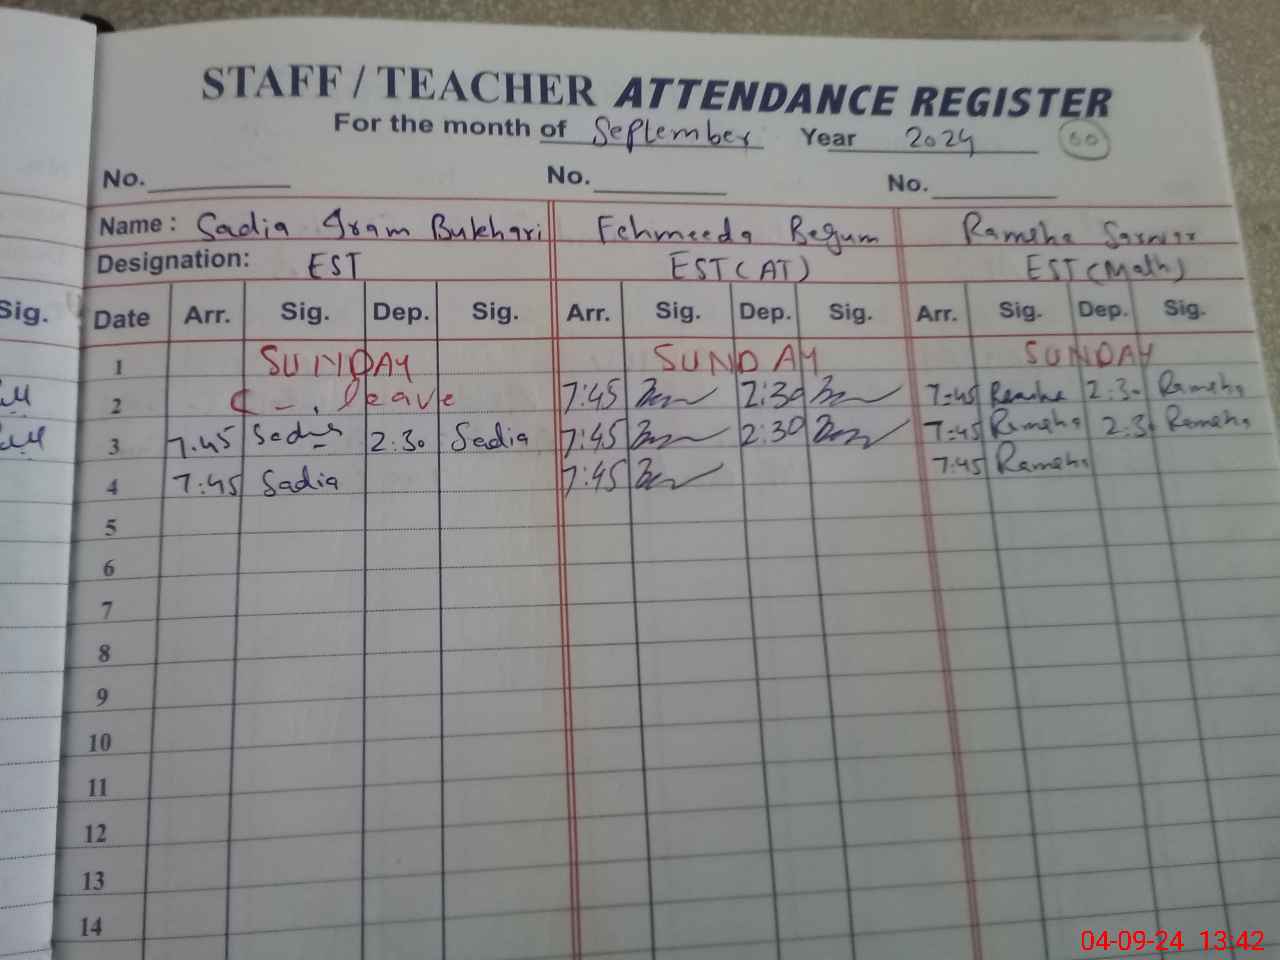 STAFF / TEACHER ATTENDANCE REGISTER
For the month of September Year 2024
No. No. No.
Name : Sadia Iram Bukhari Fehmeeda Begum Ramsha Sarwar
Designation: EST EST (AT) EST (Math)
Sig. Date Arr. Sig. Dep. Sig. Arr. Sig. Dep. Sig. Arr. Sig. Dep. Sig.
1 SUNDAY SUNDAY SUNDAY
2 C - . leave 7:45 2:30 7:45 Ramsha 2:30 Ramsha
3 7.45 Sadia 2:30 Sadia 7:45 2:30 7:45 Ramsha 2:30 Ramsha
4 7:45 Sadia 7:45 7:45 Ramsha
5
6
7
8
9
10
11
12
13
14
04-09-24 13:42